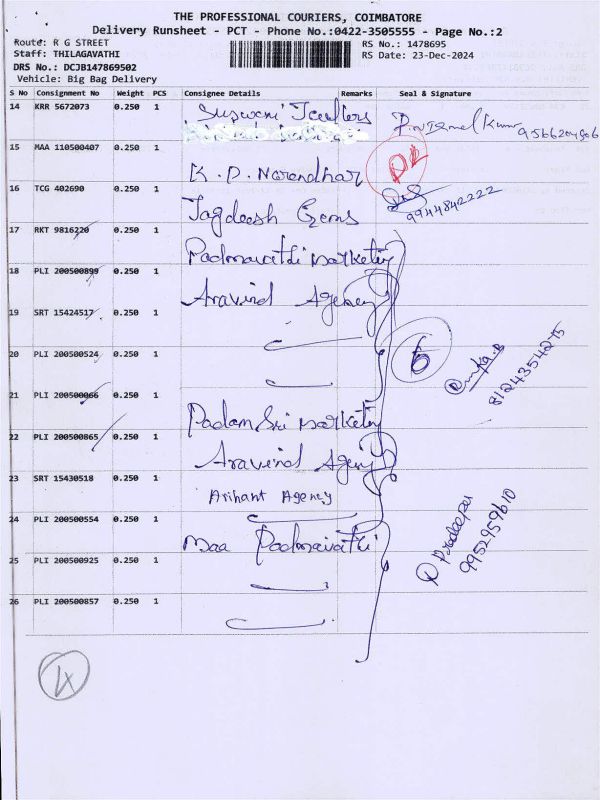 THE PROFESSIONAL COURIERS, COIMBATORE
Delivery Runsheet - PCT - Phone No.:0422-3505555 - Page No.:2
Route: R G STREET
Staff: THILAGAVATHI
DRS No.: DCJB147869502
Vehicle: Big Bag Delivery
RS No.: 1478695
RS Date: 23-Dec-2024
S No Consignment No Weight PCS Consignee Details Remarks Seal & Signature
14 KRR 5672073 0.250 1 Suswani Jewellers
15 MAA 110500407 0.250 1 K. P. Narendhar
16 TCG 402690 0.250 1 Jagdeesh Gems 9944842222
17 RKT 9816220 0.250 1 Padmavathi Marketing
18 PLI 200500899 0.250 1 Aravind Agency
19 SRT 15424517 0.250 1
20 PLI 200500524 0.250 1
6
8124354275
21 PLI 200500066 0.250 1 Padam Sri Marketing
22 PLI 200500865 0.250 1 Aravind Agency
23 SRT 15430518 0.250 1 Arihant Agency
24 PLI 200500554 0.250 1 Maa Padmavathi
Pradeepa
9952959610
25 PLI 200500925 0.250 1
26 PLI 200500857 0.250 1
4